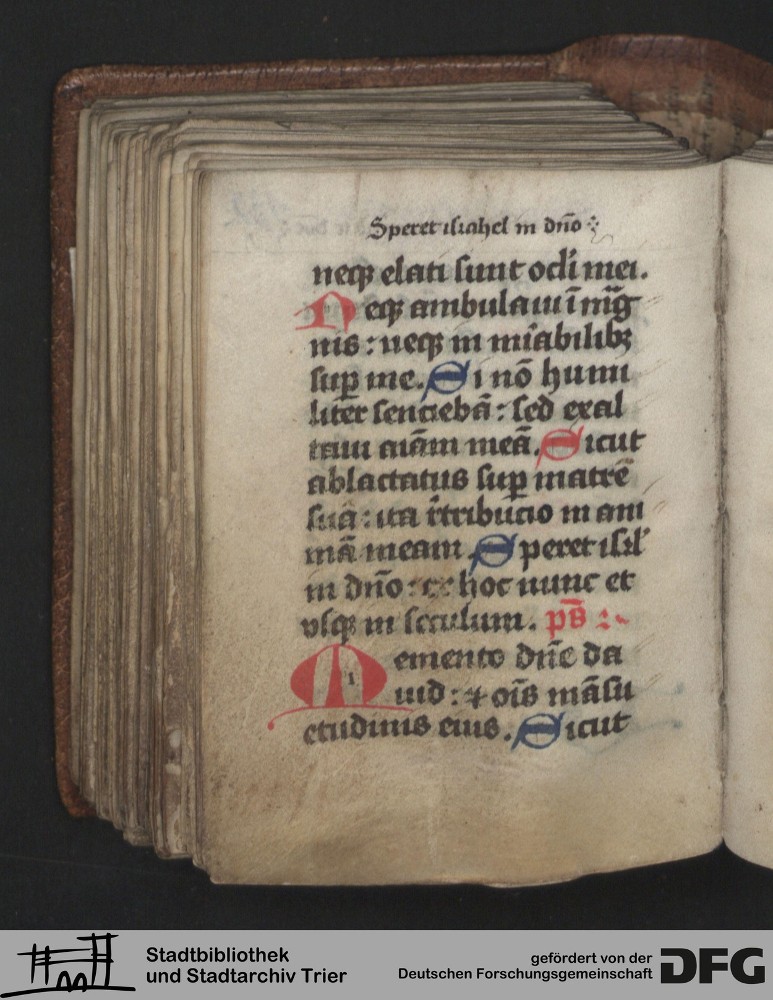 Speret israhel in dño
neqꝫ elati sunt ocl̃i mei.
Neqꝫ ambulaui ĩ mag̃
nis : neqꝫ in mĩabilibꝫ
suꝑ me. Si nõ humi
liter sentiebã : sed exal
taui aiãm meã. Sicut
ablactatus suꝑ matrẽ
suã : ita r̃tribucio in ani
mã meam. Speret isr̃l
in dño : ex hoc nunc et
vsqꝫ in seculum. ps̃
Memento dñe da
uid : ⁊ oĩs mãsu
etudinis eius. Sicut
Stadtbibliothek
und Stadtarchiv Trier
gefördert von der
Deutschen Forschungsgemeinschaft
DFG